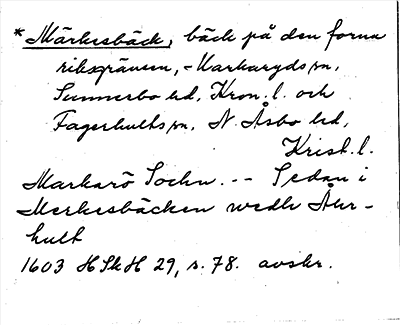 *Märkesbäck, bäck på den forna
riksgränsen, Markaryds sn,
Sunnerbo hd, Kron. l. och
Fagerhults sn, N. Åsbo hd,
Krist. l.
Markarö Sochn. -- Sedan i
Merkesbäcken wedh Åhr-
hult
1603 HSkH 29, s. 78. avskr.